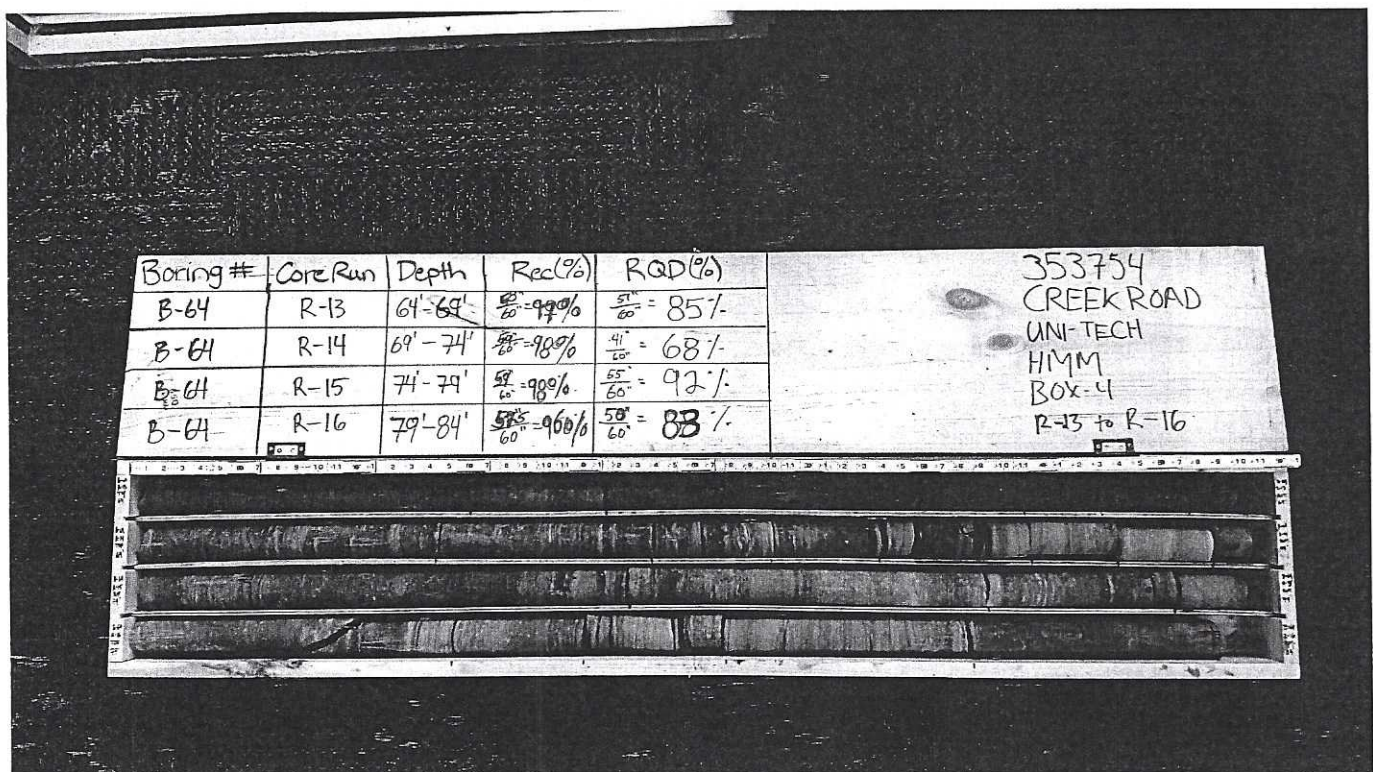 Boring # Core Run Depth Rec(%) RQD(%)
B-64 R-13 64'-69' /60" = % 51"/60" = 85%
B-64 R-14 69'-74' 59"/60" = 98% 41"/60" = 68%
B-64 R-15 74'-79' 59"/60" = 98% 55"/60" = 92%
B-64 R-16 79'-84' /60" = 96% 50"/60" = 83%
353754
CREEK ROAD
UNI-TECH
HMM
BOX-4
R-13 to R-16